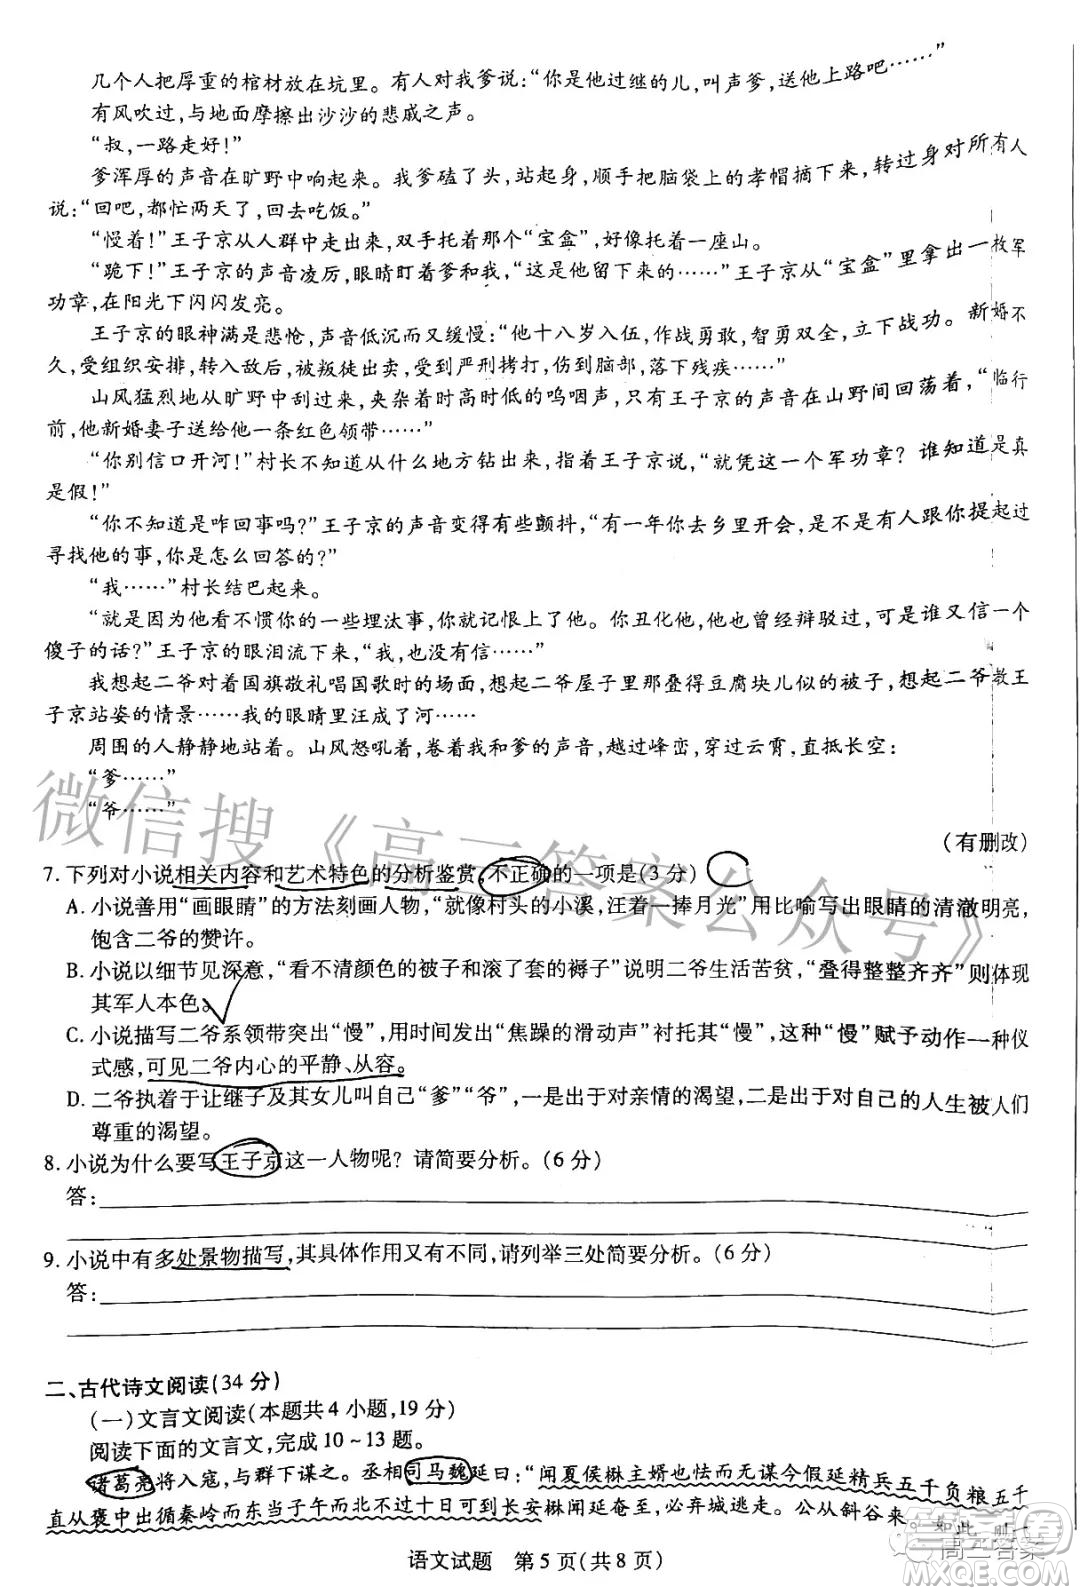 几个人把厚重的棺材放在坑里。有人对我爹说:“你是他过继的儿,叫声爹,送他上路吧……”
有风吹过,与地面摩擦出沙沙的悲戚之声。
“叔,一路走好!”
爹浑厚的声音在旷野中响起来。我爹磕了头,站起身,顺手把脑袋上的孝帽摘下来,转过身对所有人
说:“回吧,都忙两天了,回去吃饭。”
“慢着!”王子京从人群中走出来,双手托着那个“宝盒”,好像托着一座山。
“跪下!”王子京的声音凌厉,眼睛盯着爹和我,“这是他留下来的……”王子京从“宝盒”里拿出一枚军
功章,在阳光下闪闪发亮。
王子京的眼神满是悲怆,声音低沉而又缓慢:“他十八岁入伍,作战勇敢,智勇双全,立下战功。新婚不
久,受组织安排,转入敌后,被叛徒出卖,受到严刑拷打,伤到脑部,落下残疾……”
山风猛烈地从旷野中刮过来,夹杂着时高时低的呜咽声,只有王子京的声音在山野间回荡着,“临行
前,他新婚妻子送给他一条红色领带……”
“你别信口开河!”村长不知道从什么地方钻出来,指着王子京说,“就凭这一个军功章?谁知道是真
是假!”
“你不知道是咋回事吗?”王子京的声音变得有些颤抖,“有一年你去乡里开会,是不是有人跟你提起过
寻找他的事,你是怎么回答的?”
“我……”村长结巴起来。
“就是因为他看不惯你的一些埋汰事,你就记恨上了他。你丑化他,他也曾辩驳过,可是谁又信一个
傻子的话?”王子京的眼泪流下来,“我,也没有信……”
我想起二爷对着国旗敬礼唱国歌时的场面,想起二爷屋子里那叠得豆腐块儿似的被子,想起二爷教王
子京站姿的情景……我的眼睛里汪成了河……
周围的人静静地站着。山风怒吼着,卷着我和爹的声音,越过峰峦,穿过云霄,直抵长空:
“爹……”
“爷……”
(有删改)
7. 下列对小说相关内容和艺术特色的分析鉴赏,不正确的一项是(3 分)
A. 小说善用“画眼睛”的方法刻画人物,“就像村头的小溪,汪着一捧月光”用比喻写出眼睛的清澈明亮,
饱含二爷的赞许。
B. 小说以细节见深意,“看不清颜色的被子和滚了套的褥子”说明二爷生活苦贫,“叠得整整齐齐”则体现
其军人本色。
C. 小说描写二爷系领带突出“慢”,用时间发出“焦躁的滑动声”衬托其“慢”,这种“慢”赋予动作一种仪
式感,可见二爷内心的平静、从容。
D. 二爷执着于让继子及其女儿叫自己“爹”“爷”,一是出于对亲情的渴望,二是出于对自己的人生被人们
尊重的渴望。
8. 小说为什么要写王子京这一人物呢?请简要分析。(6 分)
答:
9. 小说中有多处景物描写,其具体作用又有不同,请列举三处简要分析。(6 分)
答:
二、古代诗文阅读(34 分)
(一)文言文阅读(本题共 4 小题,19 分)
阅读下面的文言文,完成 10~13 题。
诸葛亮将入寇,与群下谋之。丞相司马魏延曰:“闻夏侯楙主婿也怯而无谋今假延精兵五千负粮五千
直从褒中出循秦岭而东当子午而北不过十日可到长安楙闻延奄至,必弃城逃走。公从斜谷来。如此,则一
语文试题 第 5 页(共 8 页)
微信搜《高三答案公众号》
高三答案